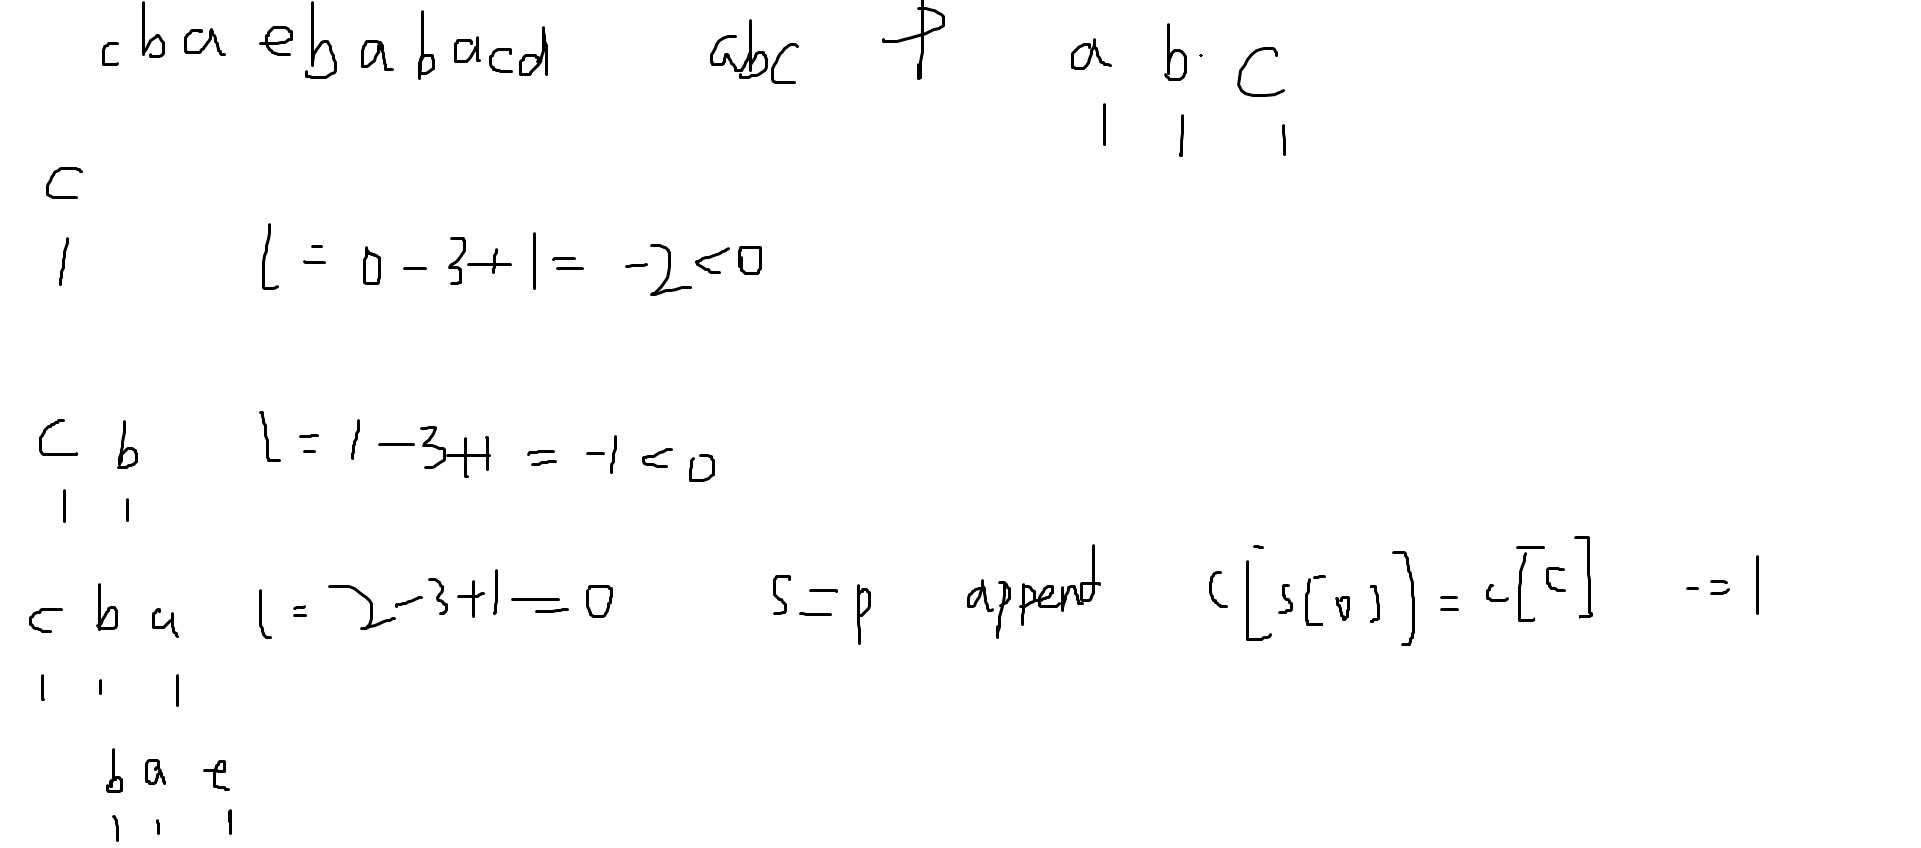 cbaebabacd abc P a b c
1 1 1
c
1 l = 0 - 3 + 1 = -2 < 0
c b l = 1 - 3 + 1 = -1 < 0
1 1
c b a l = 2 - 3 + 1 = 0 s = p append c[s[0]] = c[c] -= 1
1 1 1
b a e
1 1 1